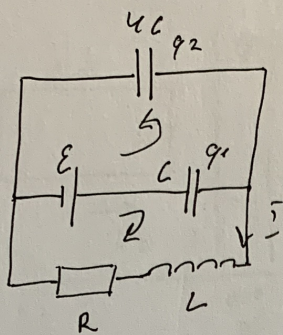 4C
q2
ℰ
C
q1
I
R
L